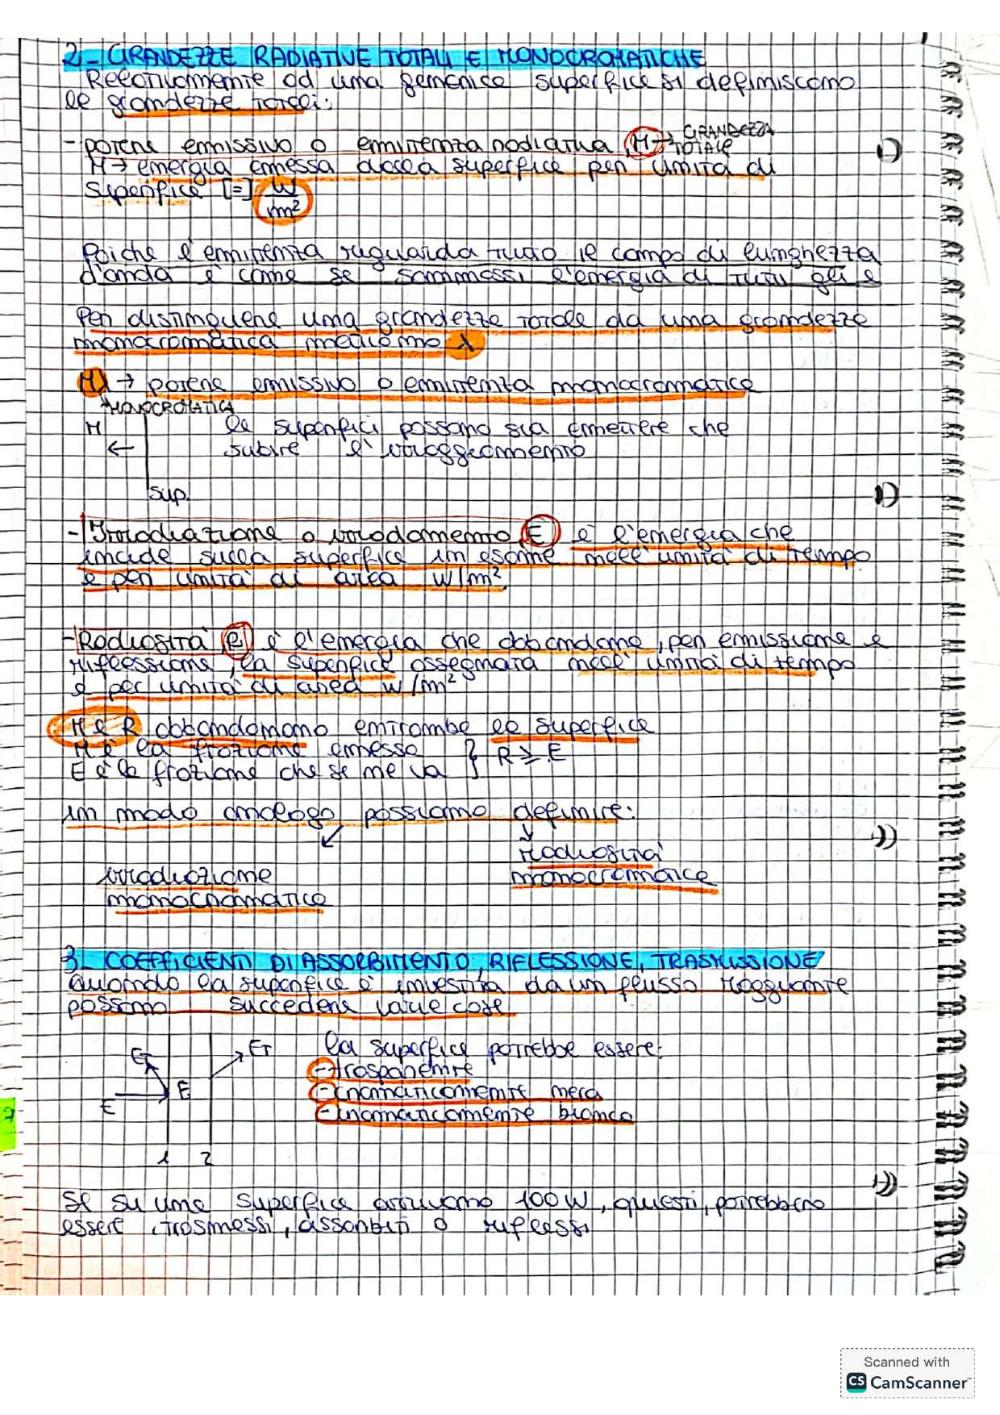 2- GRANDEZZE RADIATIVE TOTALI E MONOCROMATICHE
Relativamente ad una generica superficie si definiscono
le grandezze totali:
- potere emissivo o emittenza radiativa, M → GRANDEZZA TOTALE
M → energia emessa dalla superficie per unità di
superficie [=] W/m²
Poiche l'emittenza riguarda tutto il campo di lunghezza
d'onda è come se sommassi l'energia di tutti gli
Per distinguere una grandezza totale da una grandezza
monocromatica mettiamo λ
Mλ → potere emissivo o emittenza monocromatica
MONOCROMATICA
M
le superfici possono sia emettere che
←
subire l'irraggiamento
sup.
- Irradiazione o irradamento, E è l'energia che
incide sulla superficie in esame nell'unità di tempo
e per unità di area W/m²
- Radiosità, R è l'energia che abbandona, per emissione e
riflessione, la superficie assegnata nell'unità di tempo
e per unità di area W/m²
M e R abbandonano entrambe le superficie
M è la frazione emessa
E è la frazione che se ne va } R ≥ E
in modo analogo possiamo definire:
radiosità
monocromatica
irradiazione
monocromatica
3- COEFFICIENTI DI ASSORBIMENTO, RIFLESSIONE, TRASMISSIONE
Quando la superficie è investita da un flusso raggiante
possono succedere varie cose
La superfice potrebbe essere:
ET
- trasparente
E
- cromaticamente nera
E
- cromaticamente bianca
1 2
Se su una superfice arrivano 100 W, questi, potrebbero
essere trasmessi, assorbiti o riflessi
Scanned with
CS CamScanner